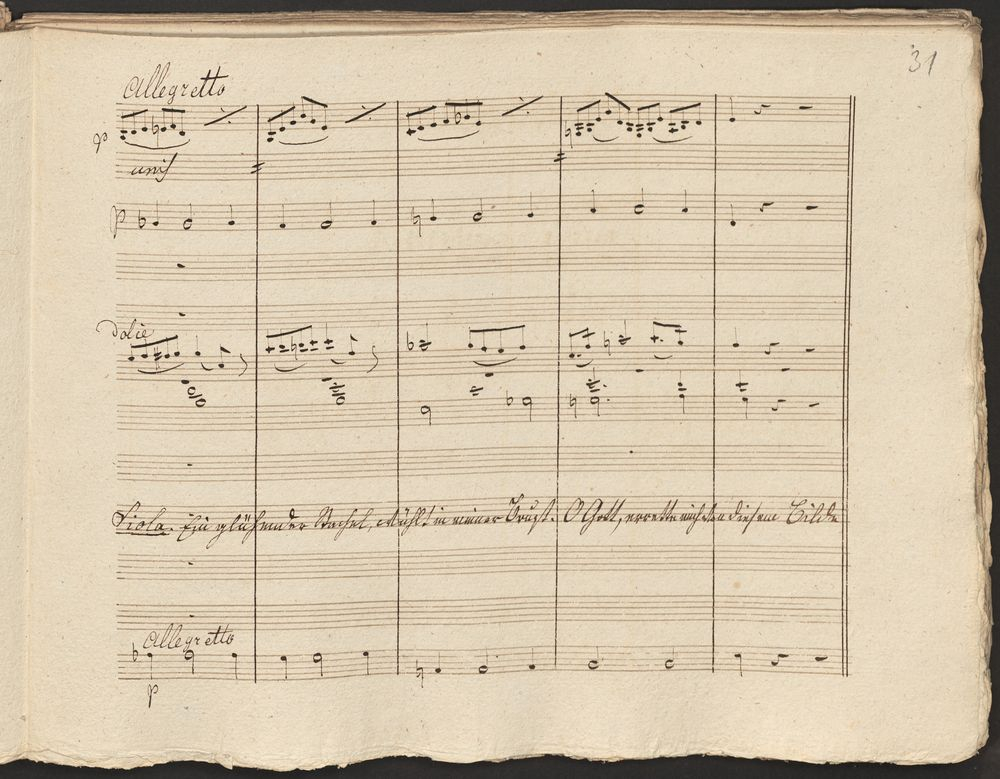 31
Allegretto
p
unis
p
dolce
Viola. Ein glühender Stachel, wühlt in meiner Brust. O Gott, errette mich von diesem Bilde
Allegretto
p